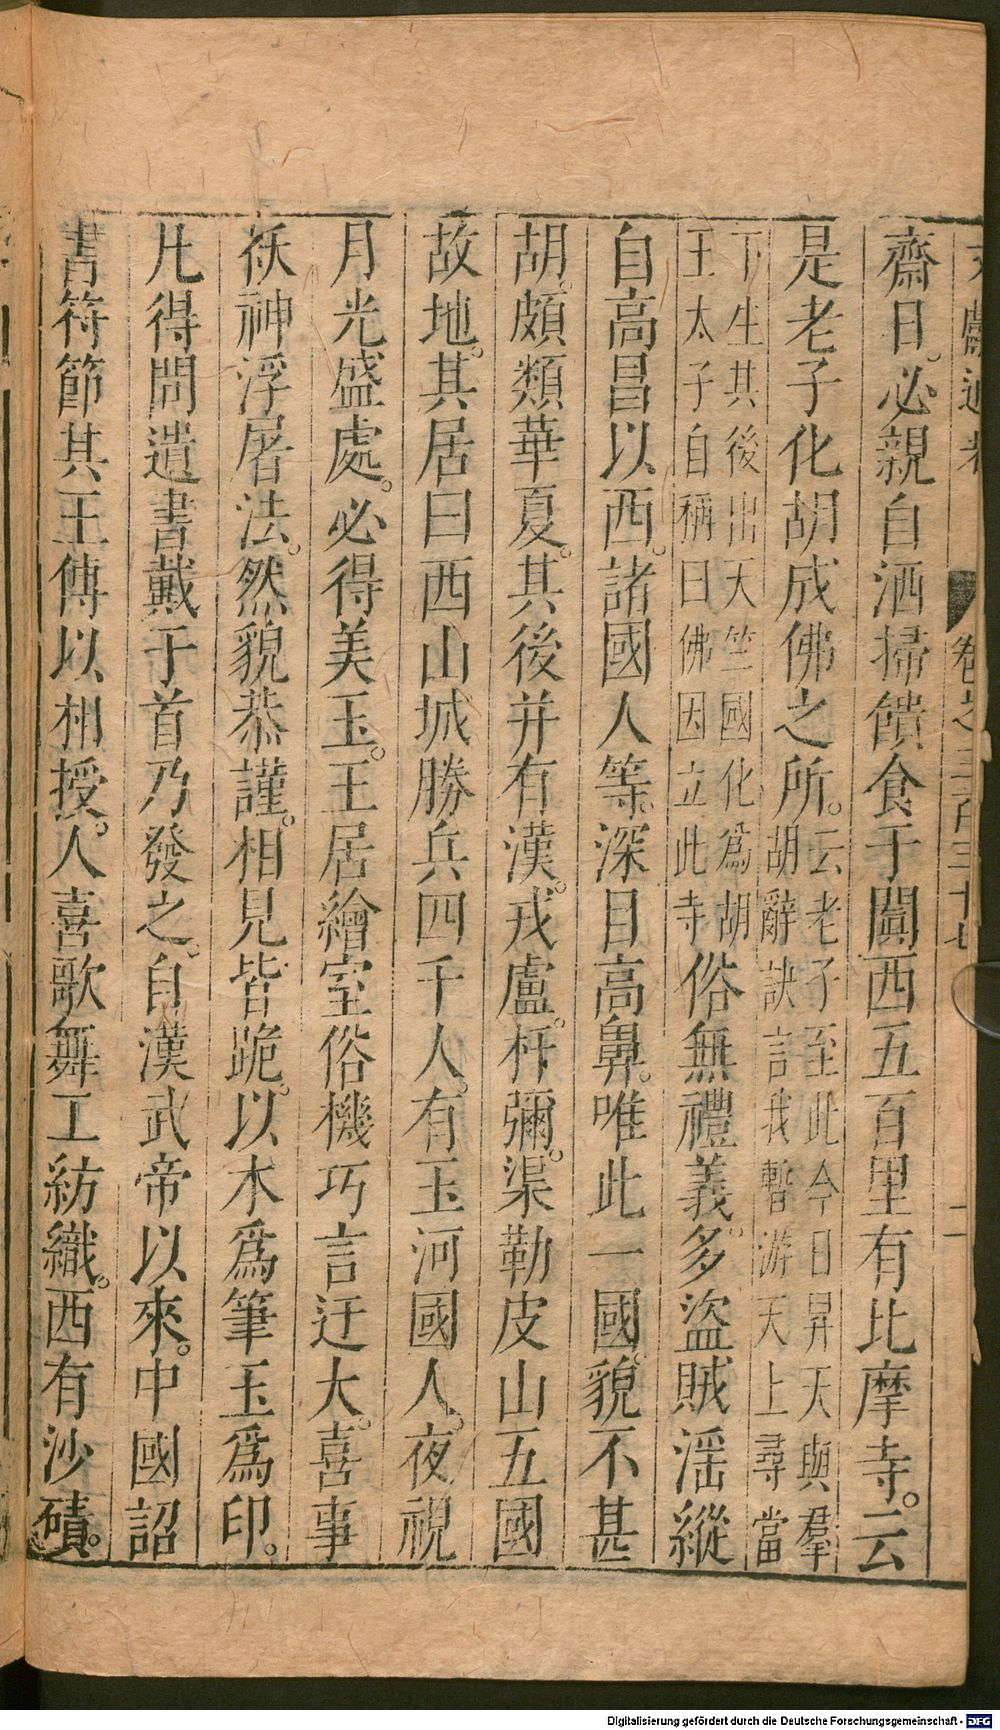 文獻通考 卷之三百三十七 二
齋日。必親自洒掃饋食于闐西五百里有比摩寺。云
是老子化胡成佛之所。云老子至此今日昇天與羣
胡辭訣言我暫游天上尋當
下生其後出天竺國化爲胡
王太子自稱曰佛因立此寺俗無禮義。多盜賊淫縱
自高昌以西。諸國人等。深目高鼻。唯此一國。貌不甚
胡。頗類華夏。其後并有漢。戎盧。杆彌。渠勒皮山五國
故地。其居曰西山城勝兵四千人。有玉河國人。夜視
月光盛處。必得美玉。王居繪室俗機巧言迂大。喜事
祅神浮屠法。然貌恭謹。相見皆跪。以木爲筆玉爲印。
凡得問遺書戴于首乃發之。自漢武帝以來。中國詔
書符節其王傳以相授。人喜歌舞工紡織。西有沙磧。
Digitalisierung gefördert durch die Deutsche Forschungsgemeinschaft - DFG